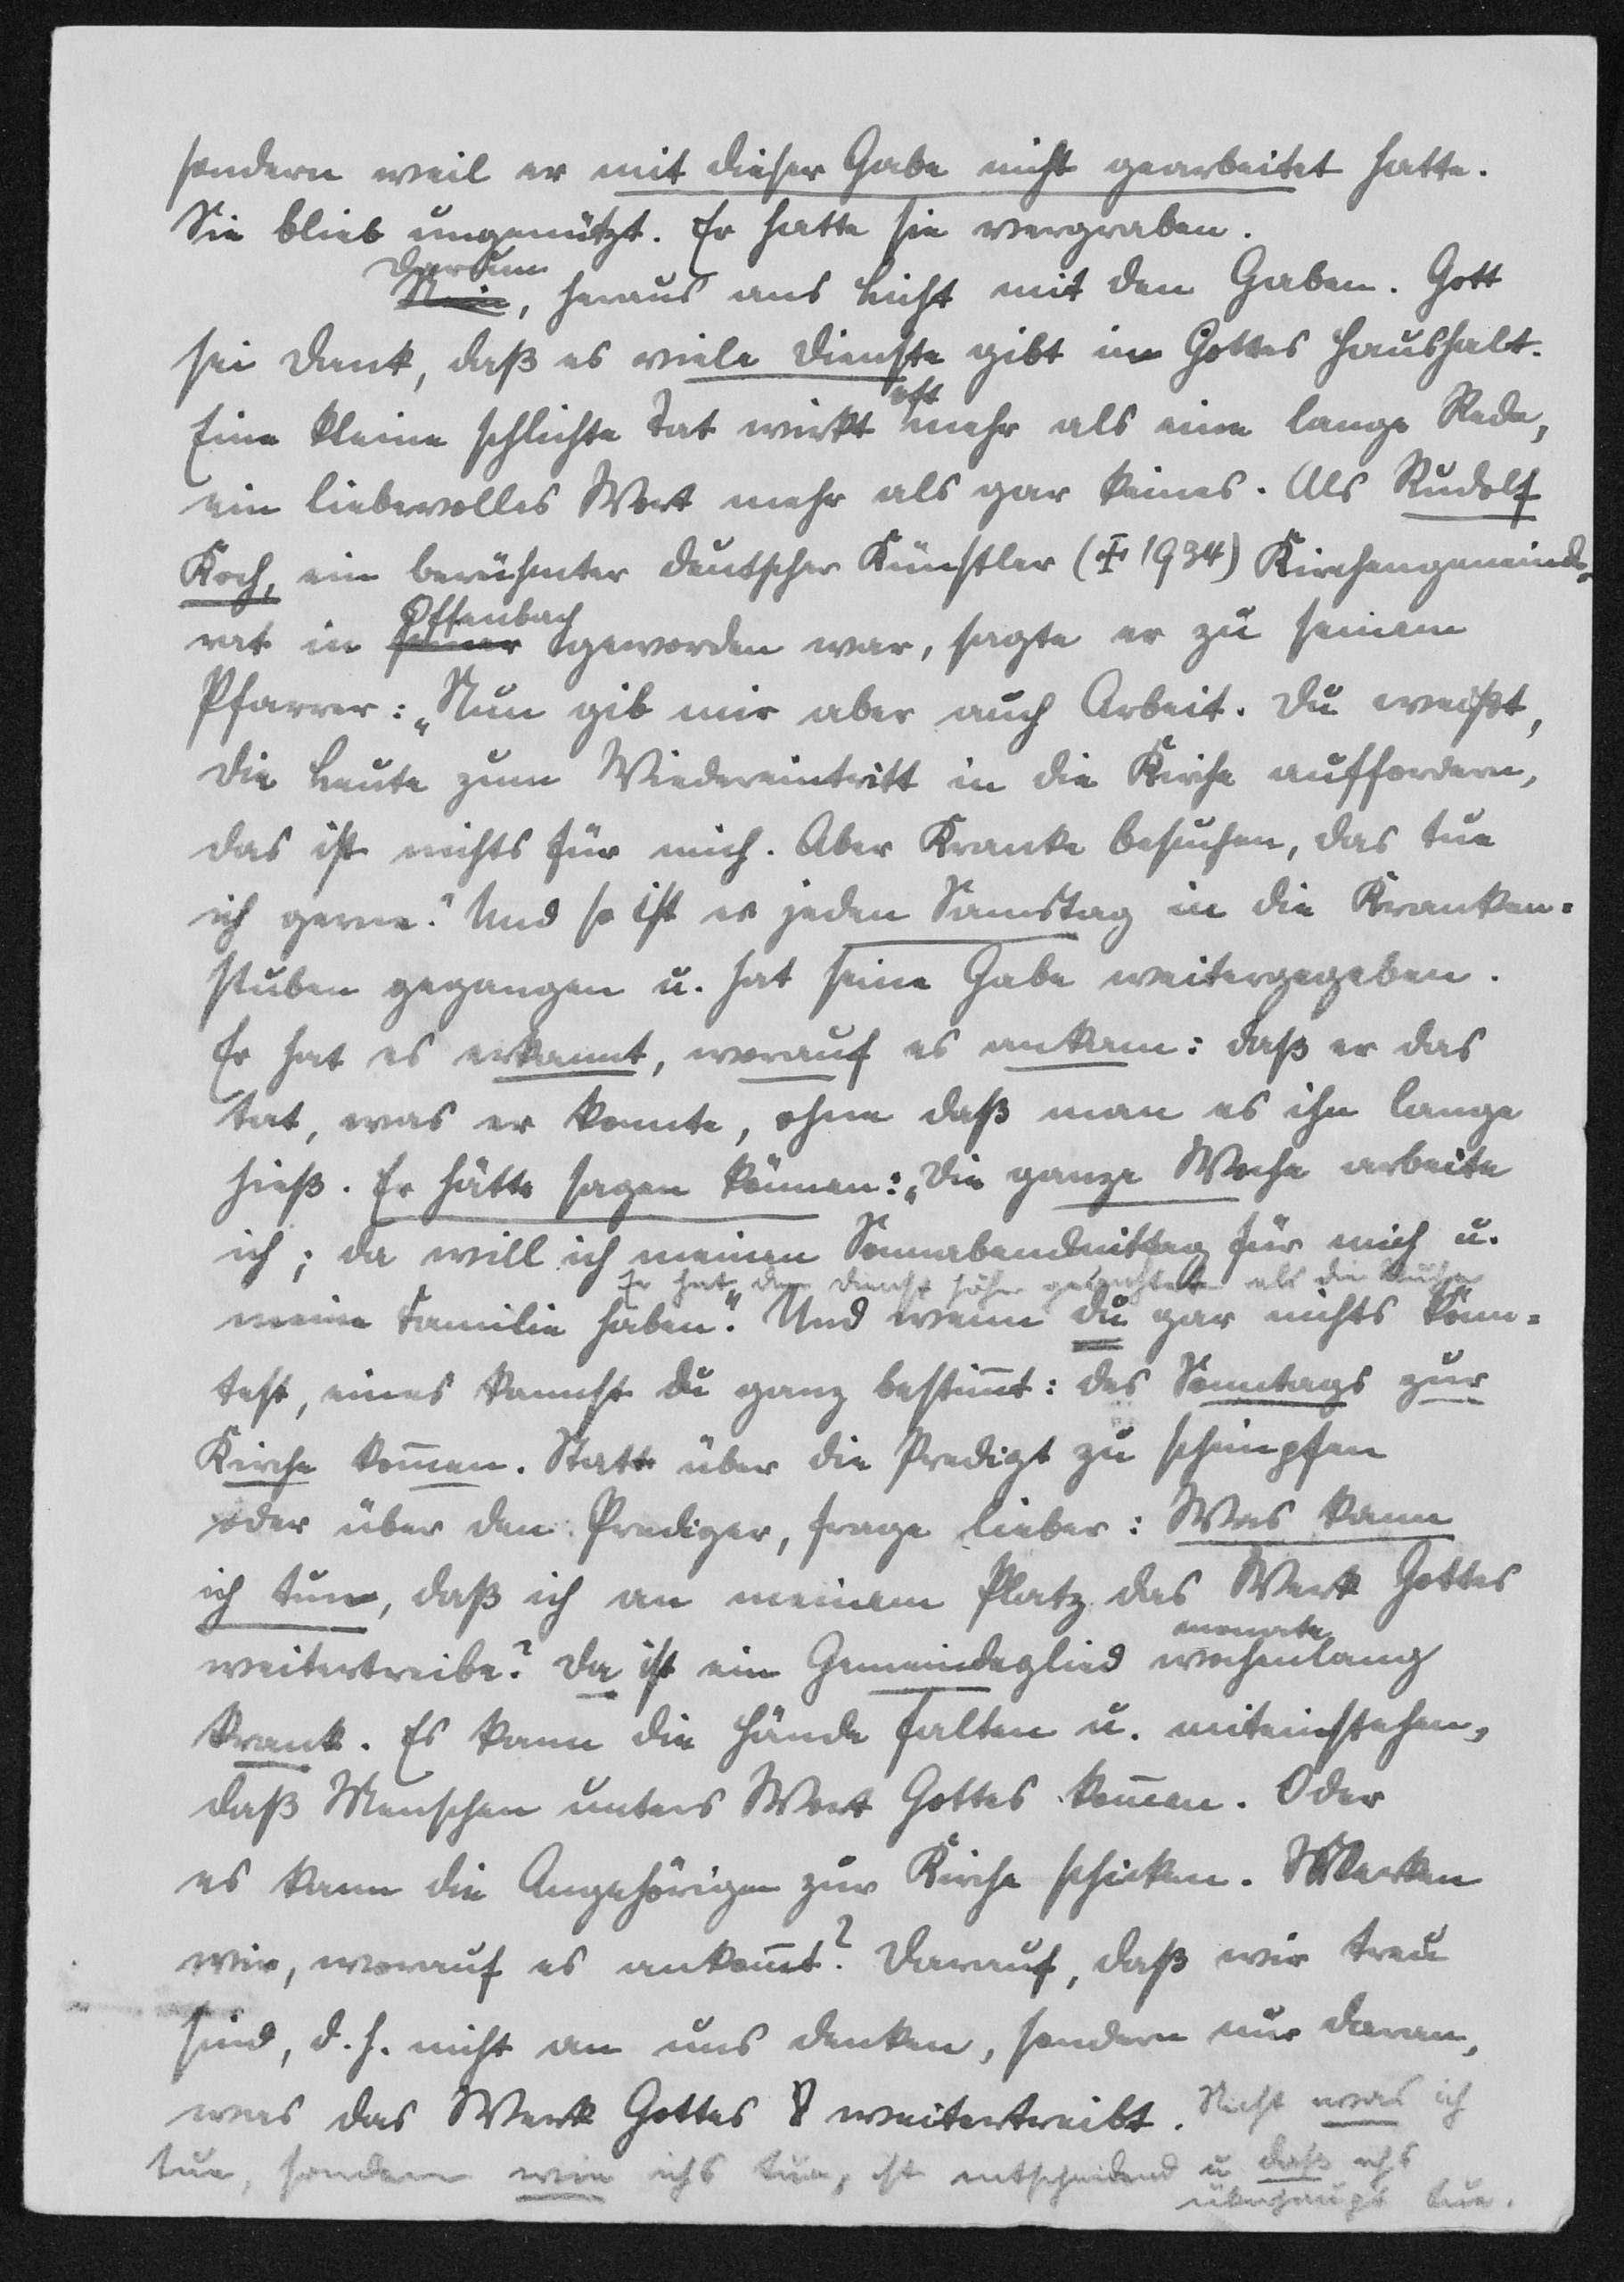 sondern weil er mit dieser Gabe nicht gearbeitet hatte.
Sie blieb ungenützt. Er hatte sie vergraben.
Darum
Nein, heraus ans Licht mit den Gaben. Gott
sei Dank, daß es viele Dienste gibt im Gottes Haushalt.
oft
Eine kleine schlichte Tat wirkt mehr als eine lange Rede,
ein liebevolles Wort mehr als gar keines. Als Rudolf
Koch, ein berühmter deutscher Künstler (✝ 1934) Kirchengemeinde-
Offenbach
rat in seiner geworden war, sagte er zu seinem
Pfarrer: „Nun gib mir aber auch Arbeit. Du weißt,
die Leute zum Wiedereintritt in die Kirche auffordern,
das ist nichts für mich. Aber Kranke besuchen, das tue
ich gerne." Und so ist er jeden Samstag in die Kranken=
stuben gegangen u. hat seine Gabe weitergegeben.
Er hat es erkannt, worauf es ankam: daß er das
tat, was er konnte, ohne daß man es ihn lange
hieß. Er hätte sagen können: „Die ganze Woche arbeite
ich; da will ich meinen Sonnabendmittag für mich u.
Er hat den Dienst höher geachtet als die Ruhe
meine Familie haben." Und wenn du gar nichts könn=
test, eines kannst du ganz bestim̅t: des Sonntags zur
Kirche kom̅en. Statt über die Predigt zu schimpfen
oder über den Prediger, frage lieber: Was kann
ich tun, daß ich an meinem Platz das Werk Gottes
monate
weitertreibe? Da ist ein Gemeindeglied wochenlang
krank. Es kann die Hände falten u. miteinstehen,
daß Menschen unters Wort Gottes kom̅en. Oder
es kann die Angehörigen zur Kirche schicken. Merken
wir, worauf es ankom̅t? Darauf, daß wir treu
sind, d. h. nicht an uns denken, sondern nur daran,
was das Werk Gottes weitertreibt. Nicht was ich
tue, sondern wie ichs tue, ist entscheidend u daß ichs
überhaupt tue.